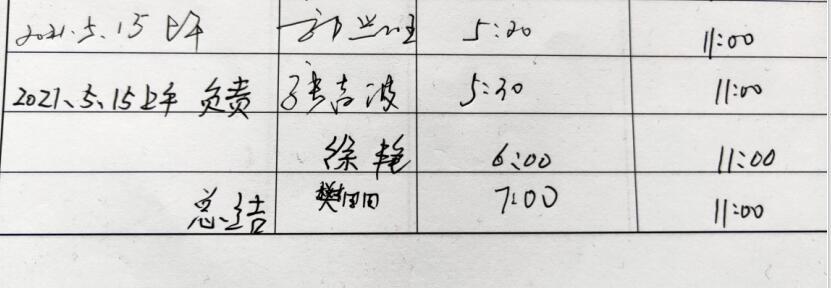 2021.5.15 上午 郭兴旺 5:20 11:00
2021、5、15上午 负责 张吉波 5:30 11:00
徐艳 6:00 11:00
总结 樊田田 7:00 11:00